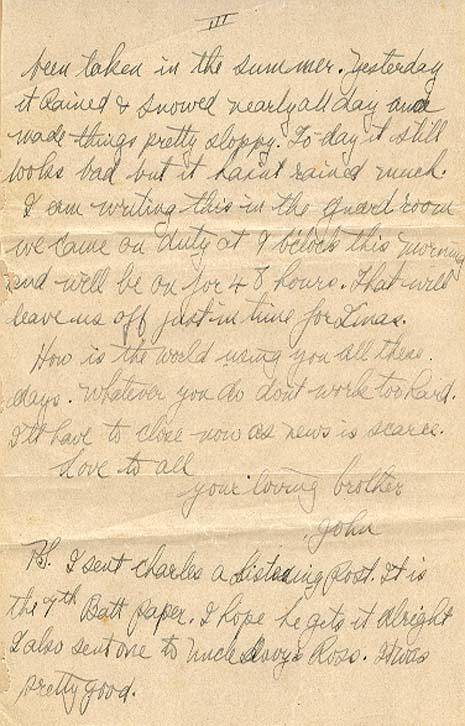 III
been taken in the summer. Yesterday
it rained & snowed nearly all day and
made things pretty sloppy. To-day it still
looks bad but it haint rained much.
I am writing this in the guard room
we came on duty at 9 o'clock this morning
and will be on for 48 hours. That will
leave us off just in time for Xmas.
How is the world using you all these
days. Whatever you do dont work too hard.
I'll have to close now as news is scarce.
Love to all
your loving brother
John
P.S. I sent Charles a Listening Post. It is
the 7th Batt paper. I hope he gets it alright
I also sent one to Uncle Davy Ross. It was
pretty good.